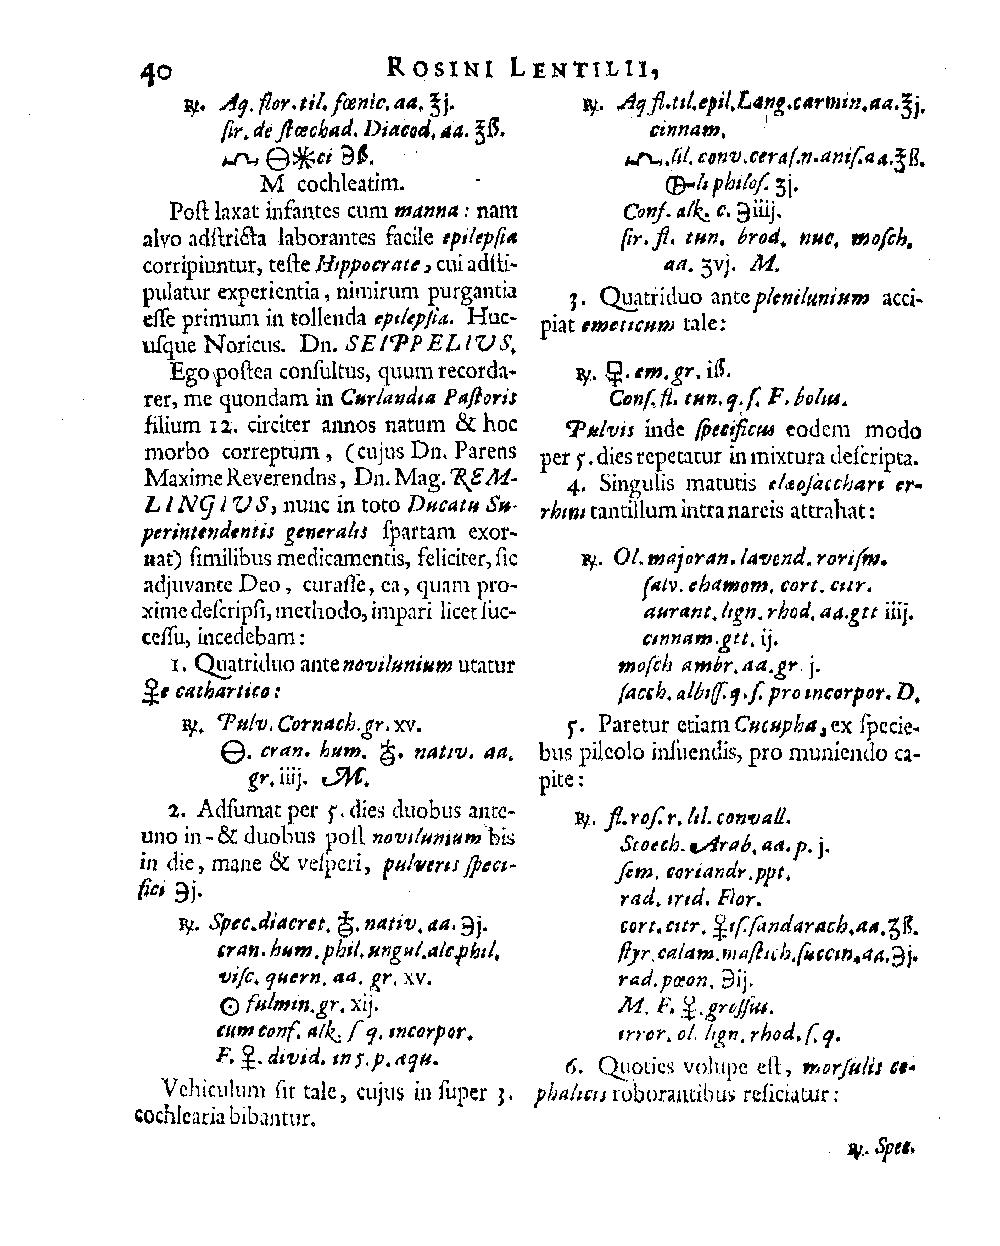 40 ROSINI LENTILII,
℞. Aq. flor. til. fœnic. aa. ℥j.
ſir. de ſtœchad. Diacod. aa. ℥ß.
🜔✱ci ℈ß.
M cochleatim.
Poſt laxat infantes cum manna: nam
alvo adſtricta laborantes facile epilepſia
corripiuntur, teſte Hippocrate, cui adſti-
pulatur experientia, nimirum purgantia
eſſe primum in tollenda epilepſia. Huc-
uſque Noricus. Dn. SEIPPELIUS.
Ego poſtea conſultus, quum recorda-
rer, me quondam in Curlandia Paſtoris
filium 12. circiter annos natum & hoc
morbo correptum, (cujus Dn. Parens
Maxime Reverendns, Dn. Mag. REM-
LINGIUS, nunc in toto Ducatu Su-
perintendentis generalis ſpartam exor-
nat) ſimilibus medicamentis, feliciter, ſic
adjuvante Deo, curaſſe, ea, quam pro-
xime deſcripſi, methodo, impari licet ſuc-
ceſſu, incedebam:
1. Quatriduo ante novilunium utatur
♀e cathartico:
℞. Pulv. Cornach. gr. xv.
🜔. cran. hum. nativ. aa.
gr. iiij. M.
2. Adſumat per 5. dies duobus ante-
uno in- & duobus poſt novilunium bis
in die, mane & veſperi, pulveris ſpeci-
fici ℈j.
℞. Spec. diacret. nativ. aa. ℈j.
cran. hum. phil. ungul. alc. phil.
viſc. quern. aa. gr. xv.
☉ fulmin. gr. xij.
cum conf. alk. ſ q. incorpor.
F. divid. in 5. p. aqu.
Vehiculum ſit tale, cujus in ſuper 3.
cochlearia bibantur.
℞. Aq fl. til. epil. Lang. carmin. aa. ℥j.
cinnam.
lil. conv. ceraſ. n. aniſ. aa. ℥ß.
philoſ. ʒj.
Conf. alk. c. ℈iiij.
ſir. fl. tun. brod. nuc. moſch.
aa. ʒvj. M.
3. Quatriduo ante plenilunium acci-
piat emeticum tale:
℞. em. gr. iß.
Conſ. fl. tun. q. ſ. F. bolus.
Pulvis inde ſpecificus eodem modo
per 5. dies repetatur in mixtura deſcripta.
4. Singulis matutis elæoſacchari er-
rhini tantillum intra nareis attrahat:
℞. Ol. majoran. lavend. roriſm.
ſalv. chamom. cort. citr.
aurant. lign. rhod. aa. gtt iiij.
cinnam. gtt. ij.
moſch ambr. aa. gr. j.
ſacch. albiſſ. q. ſ. pro incorpor. D.
5. Paretur etiam Cucupha, ex ſpecie-
bus pileolo inſuendis, pro muniendo ca-
pite:
℞. fl. roſ. r. lil. convall.
Stoech. Arab. aa. p. j.
ſem. coriandr. ppt.
rad. irid. Flor.
cort. citr. ſandarach. aa. ʒß.
ſtyr. calam. maſtich. ſuccin. aa. ℈j.
rad. pœon. ℈ij.
M. F. groſſus.
irror. ol. lign. rhod. ſ. q.
6. Quoties volupe eſt, morſulis ce-
phalicis roborantibus reficiatur:
℞. Spec.